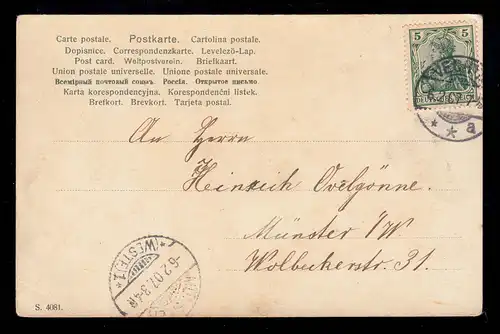 Carte postale. Postkarte. Cartolina postale.
Dopisnice. Correspondenzkarte. Levelező-Lap.
Post card. Weltpostverein. Briefkaart.
Union postale universelle. Unione postale universale.
Всемірный почтовый союзъ. Россія. Открытое письмо.
Karta korespondencyjna. Korespondenční lístek.
Brefkort. Brevkort. Tarjeta postal.
5 5
DEUTSCHES REICH
* * a
An Herrn
Heinrich Ovelgönne.
Münster i/W.
Wolbeckerstr. 31.
* (WESTF.) 1 *
-6.2.07. 3-4 N
S. 4081.